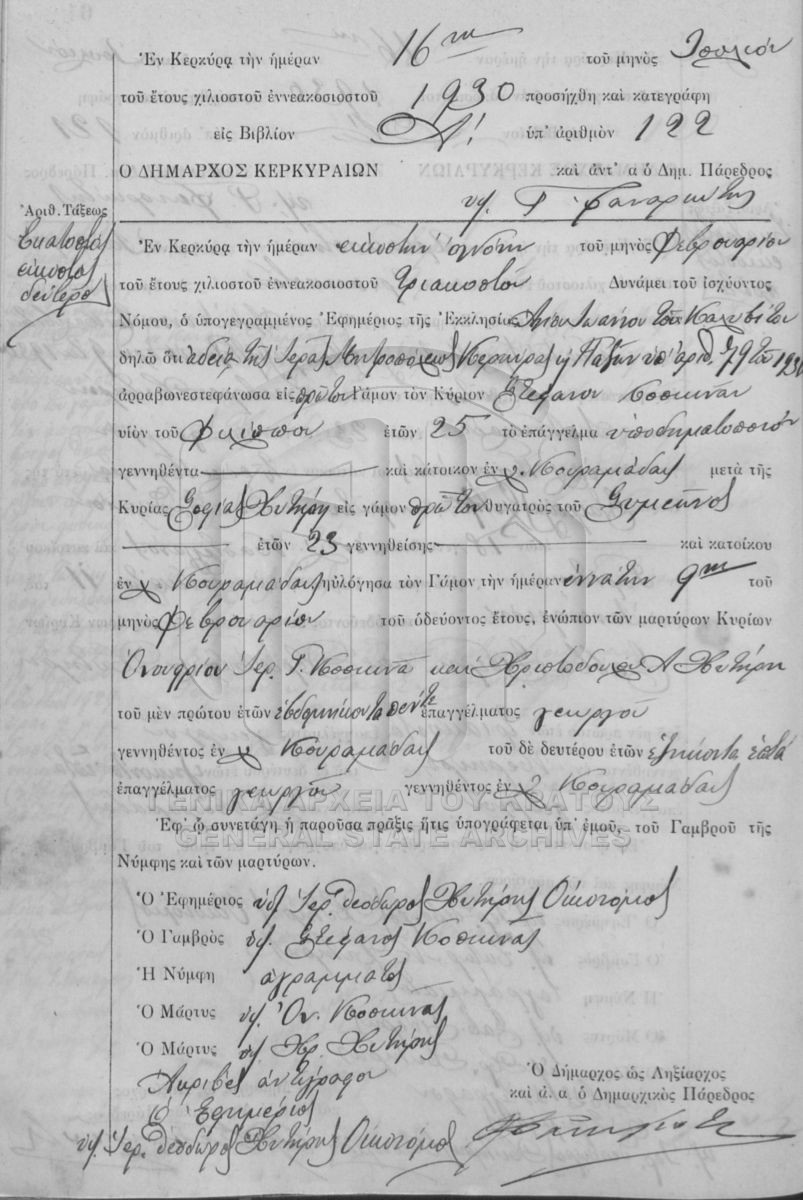 Ἐν Κερκύρᾳ τὴν ἡμέραν 16ην τοῦ μηνὸς Ἰουλίου
τοῦ ἔτους χιλιοστοῦ ἐννεακοσιοστοῦ 1930 προσήχθη καὶ κατεγράφη
εἰς Βιβλίον Α! ὑπ' ἀριθμὸν 122
Ο ΔΗΜΑΡΧΟΣ ΚΕΡΚΥΡΑΙΩΝ καὶ ἀντ' α ὁ Δημ. Πάρεδρος
υφ. Γ.
Ἀριθ. Τάξεως
Ἑκατοστὸς
εἰκοστὸς
δεύτερος
Ἐν Κερκύρᾳ τὴν ἡμέραν εἰκοστὴν ὀγδόην τοῦ μηνὸς Φεβρουαρίου
τοῦ ἔτους χιλιοστοῦ ἐννεακοσιοστοῦ τριακοστοῦ Δυνάμει τοῦ ἰσχύοντος
Νόμου, ὁ ὑπογεγραμμένος Ἐφημέριος τῆς Ἐκκλησίας Ἁγίου Ἰωάννου τοῦ Καλυβίτου
δηλῶ ὅτι ἀδείᾳ τῆς Ἱερᾶς Μητροπόλεως Κερκύρας κ Παξῶν ὑπ' ἀριθ. 79 τοῦ 1930
ἀρραβωνεστεφάνωσα εἰς πρῶτον Γάμον τὸν Κύριον Στέφανον Κοσκινᾶν
υἱὸν τοῦ Φιλίππου ἐτῶν 25 τὸ ἐπάγγελμα ὑποδηματοποιὸν
γεννηθέντα καὶ κάτοικον ἐν χ. Κουραμάδας μετὰ τῆς
Κυρίας Σοφίας Χυτήρη εἰς γάμον πρῶτον θυγατρὸς τοῦ Συμεῶνος
ἐτῶν 23 γεννηθείσης καὶ κατοίκου
ἐν χ. Κουραμάδας ηὐλόγησα τὸν Γάμον τὴν ἡμέραν ἐννάτην 9ην τοῦ
μηνὸς Φεβρουαρίου τοῦ ὁδεύοντος ἔτους, ἐνώπιον τῶν μαρτύρων Κυρίων
Ὀνουφρίου Ἱερ. Γ. Κοσκινᾶ καὶ Χριστοδούλου Α Χυτήρη
τοῦ μὲν πρώτου ἐτῶν ἑβδομήκοντα πέντε ἐπαγγέλματος γεωργοῦ
γεννηθέντος ἐν χ Κουραμάδας τοῦ δὲ δευτέρου ἐτῶν ἑξήκοντα ἑπτὰ
ἐπαγγέλματος γεωργοῦ γεννηθέντος ἐν χ Κουραμάδας
ΓΕΝΙΚΑ ΑΡΧΕΙΑ ΤΟΥ ΚΡΑΤΟΥΣ
Ἐφ' ᾧ συνετάγη ἡ παροῦσα πρᾶξις ἥτις ὑπογράφεται ὑπ' ἐμοῦ, τοῦ Γαμβροῦ τῆς
GENERAL STATE ARCHIVES
Νύμφης καὶ τῶν μαρτύρων.
Ὁ Ἐφημέριος υφ Ἱερ. Θεόδωρος Χυτήρης Οἰκονόμος
Ὁ Γαμβρὸς υφ. Στέφανος Κοσκινᾶς
Ἡ Νύμφη ἀγράμματος
Ὁ Μάρτυς υφ. Ὀν. Κοσκινᾶς
Ὁ Μάρτυς υφ Χρ. Χυτήρης
Ἀκριβὲς ἀντίγραφον
Ὁ Ἐφημέριος
υφ. Ἱερ. Θεόδωρος Χυτήρης Οἰκονόμος
Ὁ Δήμαρχος ὡς Ληξίαρχος
καὶ ἀ. α. ὁ Δημαρχικὸς Πάρεδρος